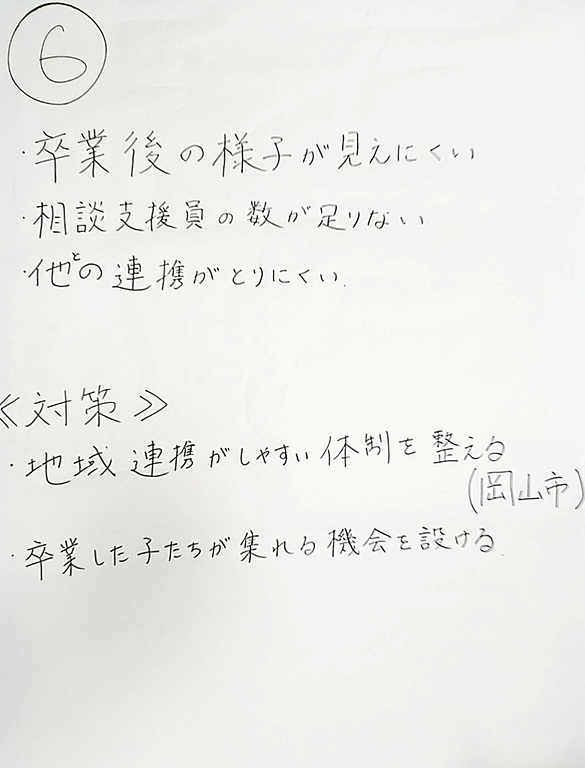 ⑥
・卒業後の様子が見えにくい
・相談支援員の数が足りない
・他との連携がとりにくい.
≪対策≫
・地域連携がしやすい体制を整える
(岡山市)
・卒業した子たちが集れる機会を設ける.